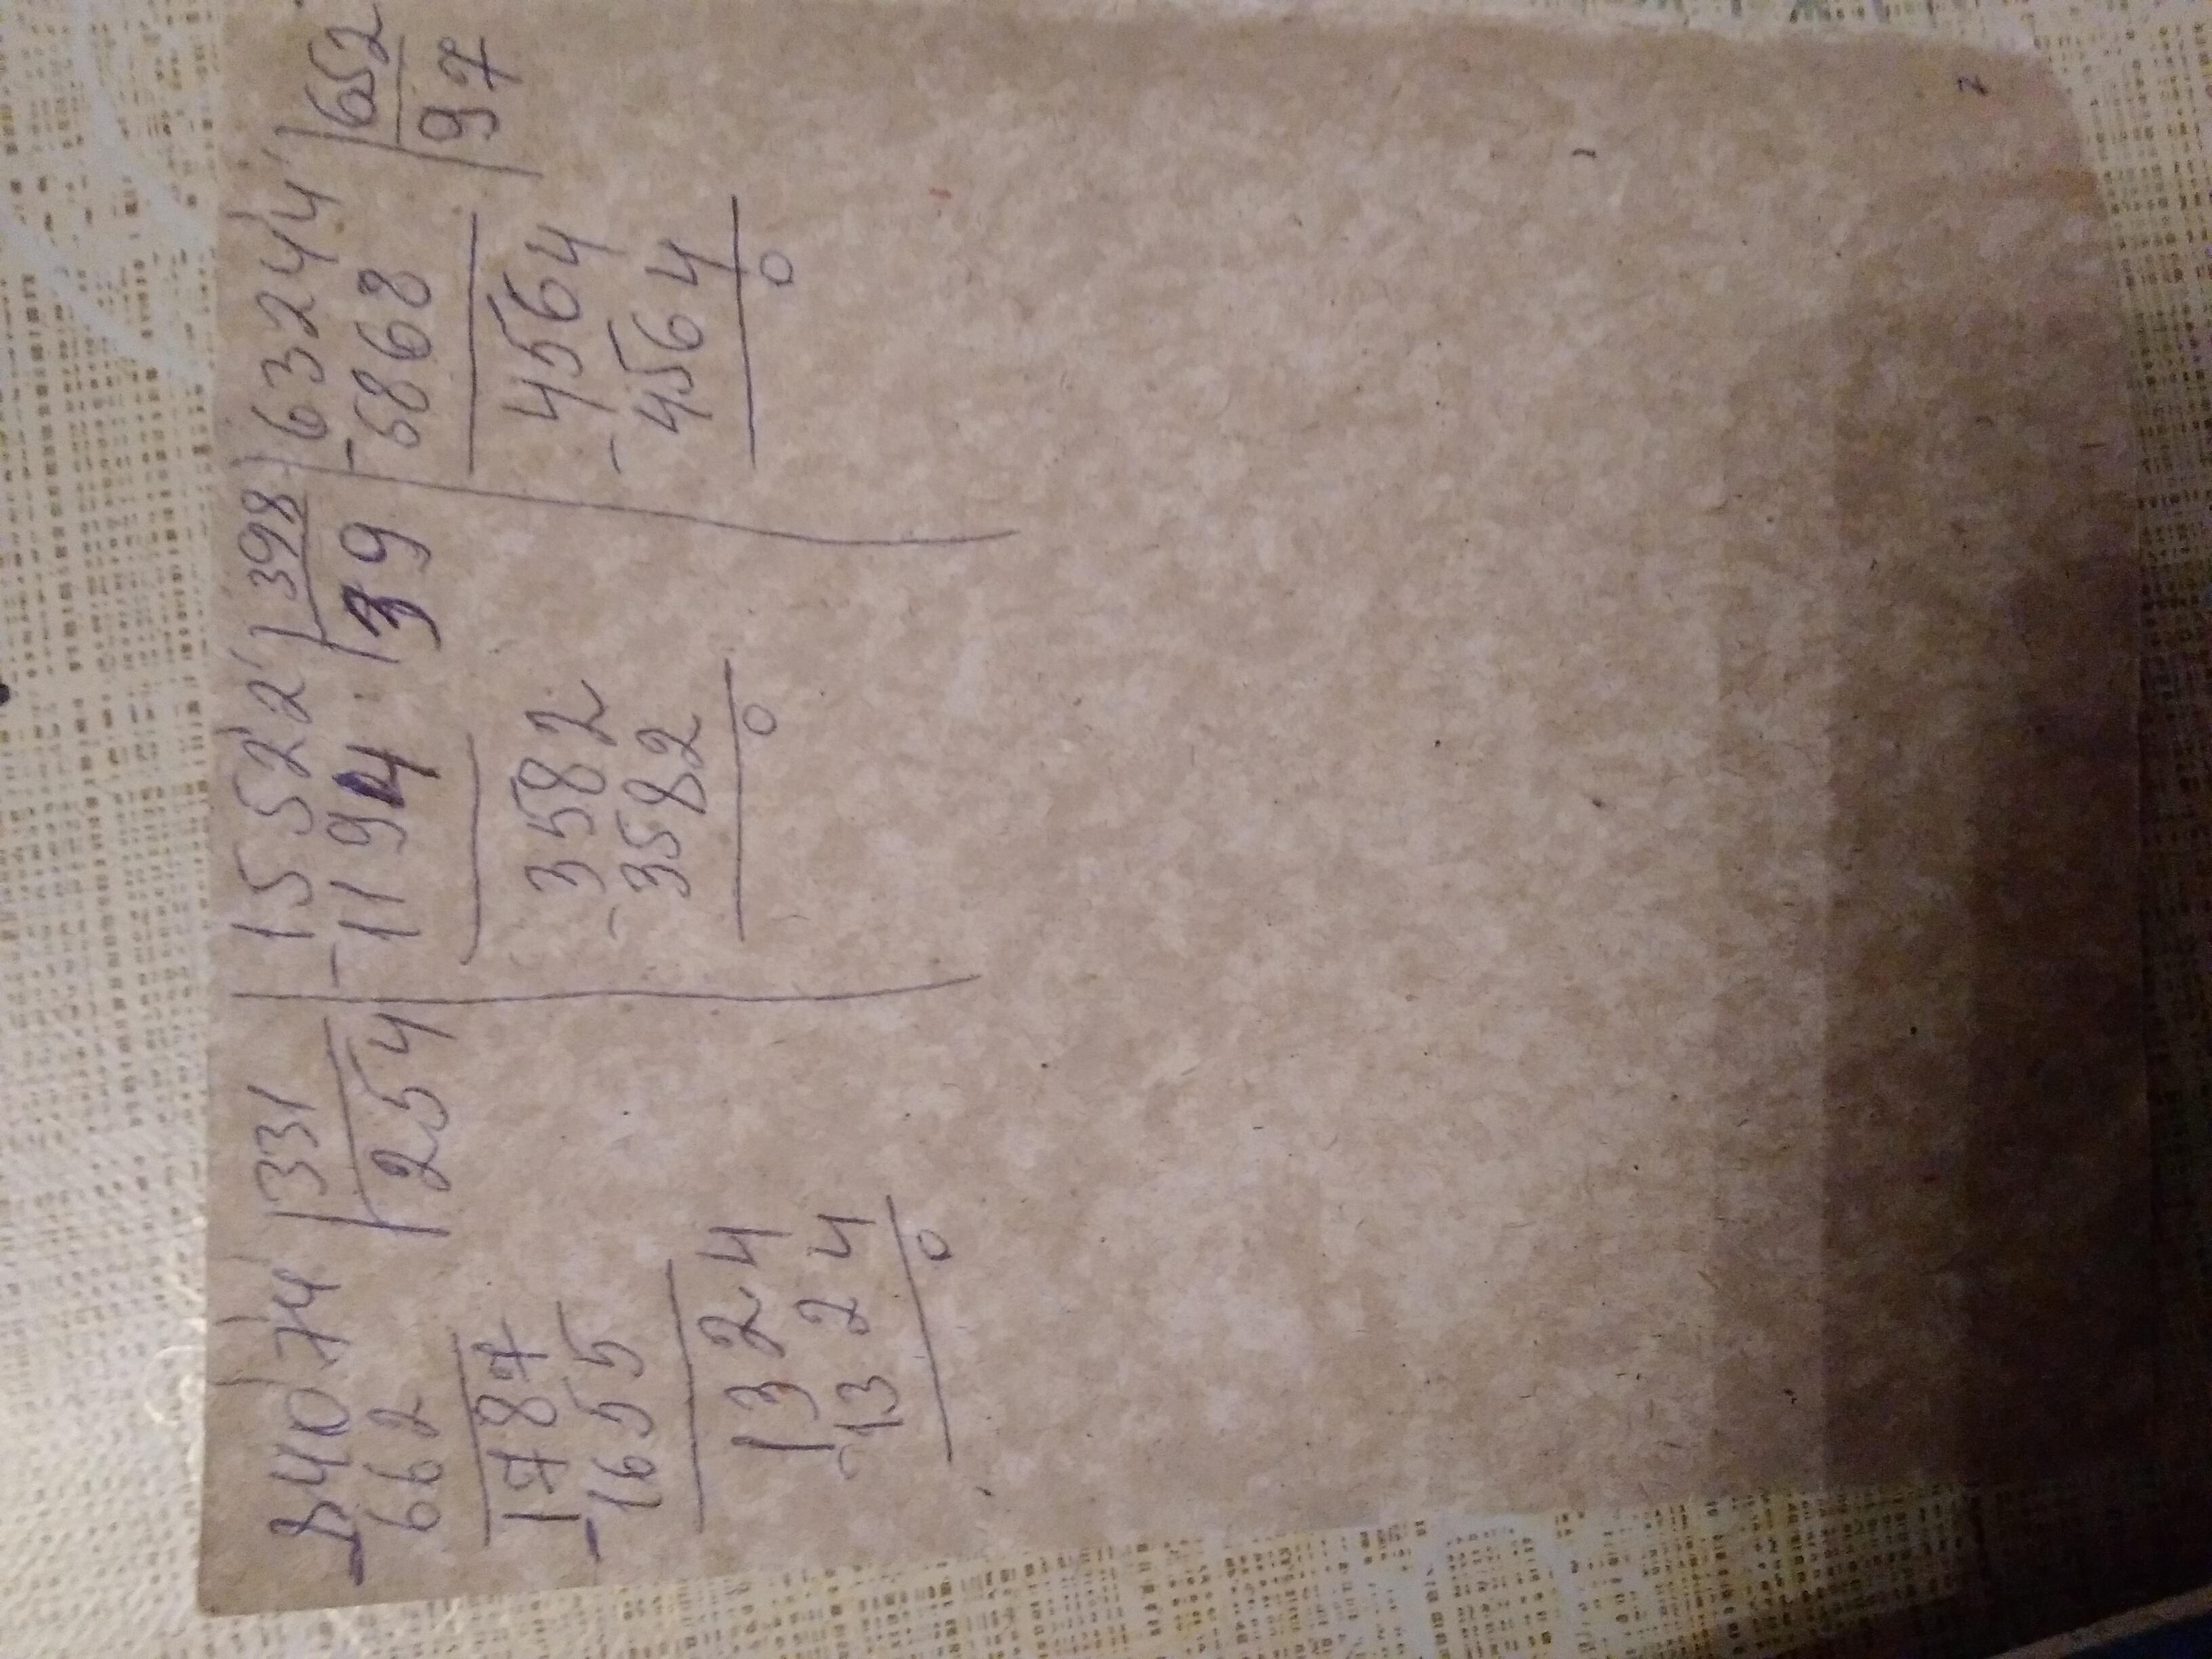 84074 331
- 662 254
1787
- 1655
1324
- 1324
0
15522 398
- 1194 39
3582
- 3582
0
63244 652
- 5868 97
4564
- 4564
0